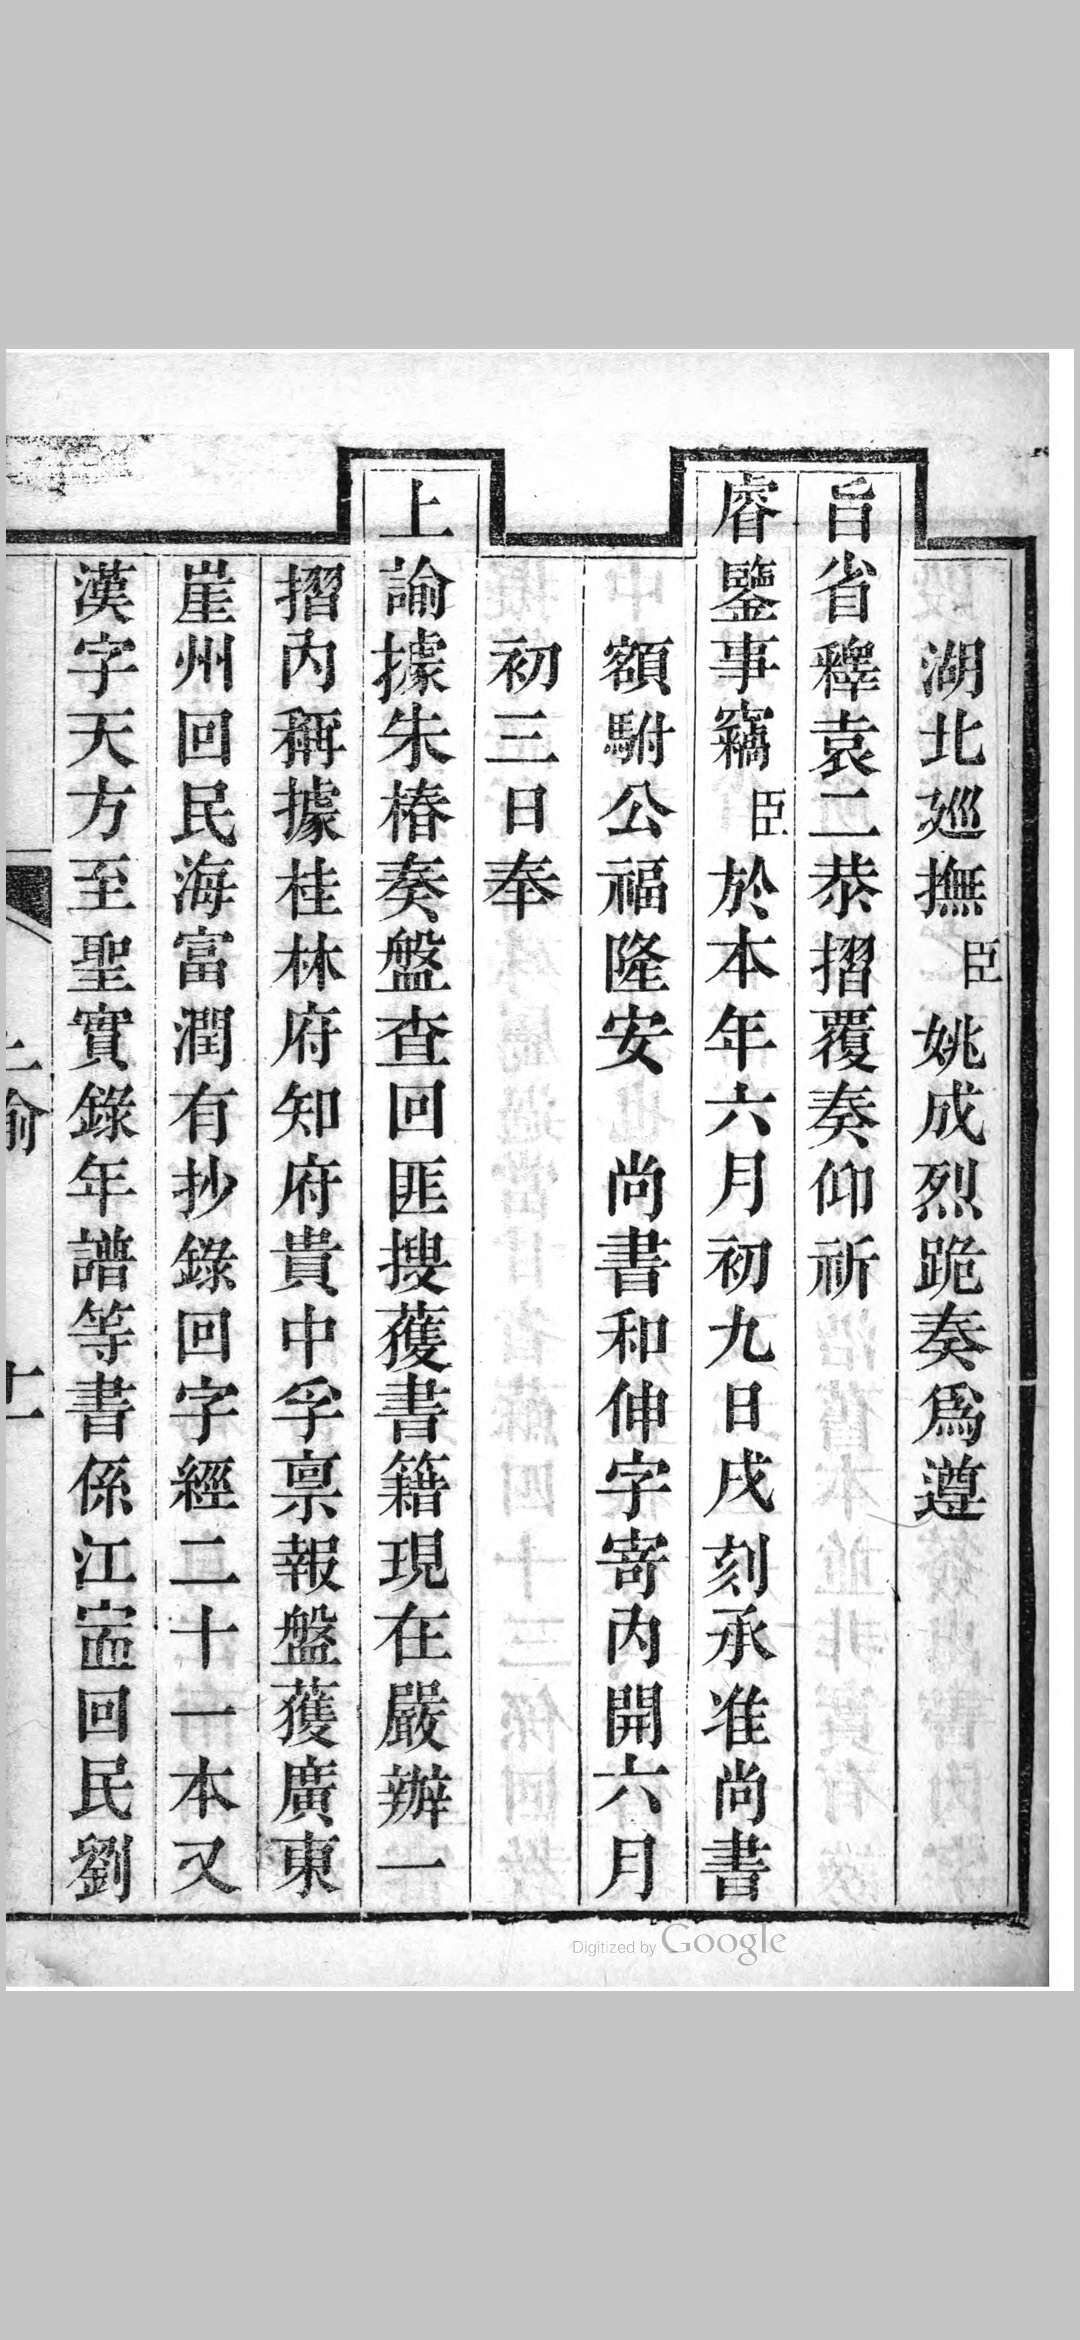 湖北廵撫臣姚成烈跪奏爲遵
旨省釋袁二恭摺覆奏仰祈
睿鑒事竊臣於本年六月初九日戌刻承准尚書
額駙公福隆安 尚書和伸字寄內開六月
初三日奉
上諭據朱椿奏盤查回匪搜獲書籍現在嚴辦一
摺內稱據桂林府知府貴中孚禀報盤獲廣東
崖州回民海富潤有抄錄回字經二十一本又
漢字天方至聖實錄年譜等書係江寍回民劉
上諭
十一
Digitized by Google